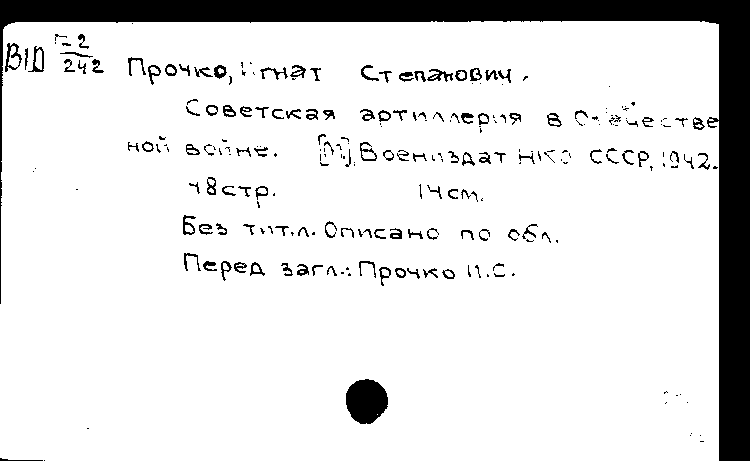 В1D Г-2/242
Прочко, Игнат Степанович.
Советская артиллерия в Отечестве
ной войне. [М], Воениздат НКО СССР, 1942.
48стр. 14см.
Без тит.л. Описано по обл.
Перед загл.: Прочко И.С.